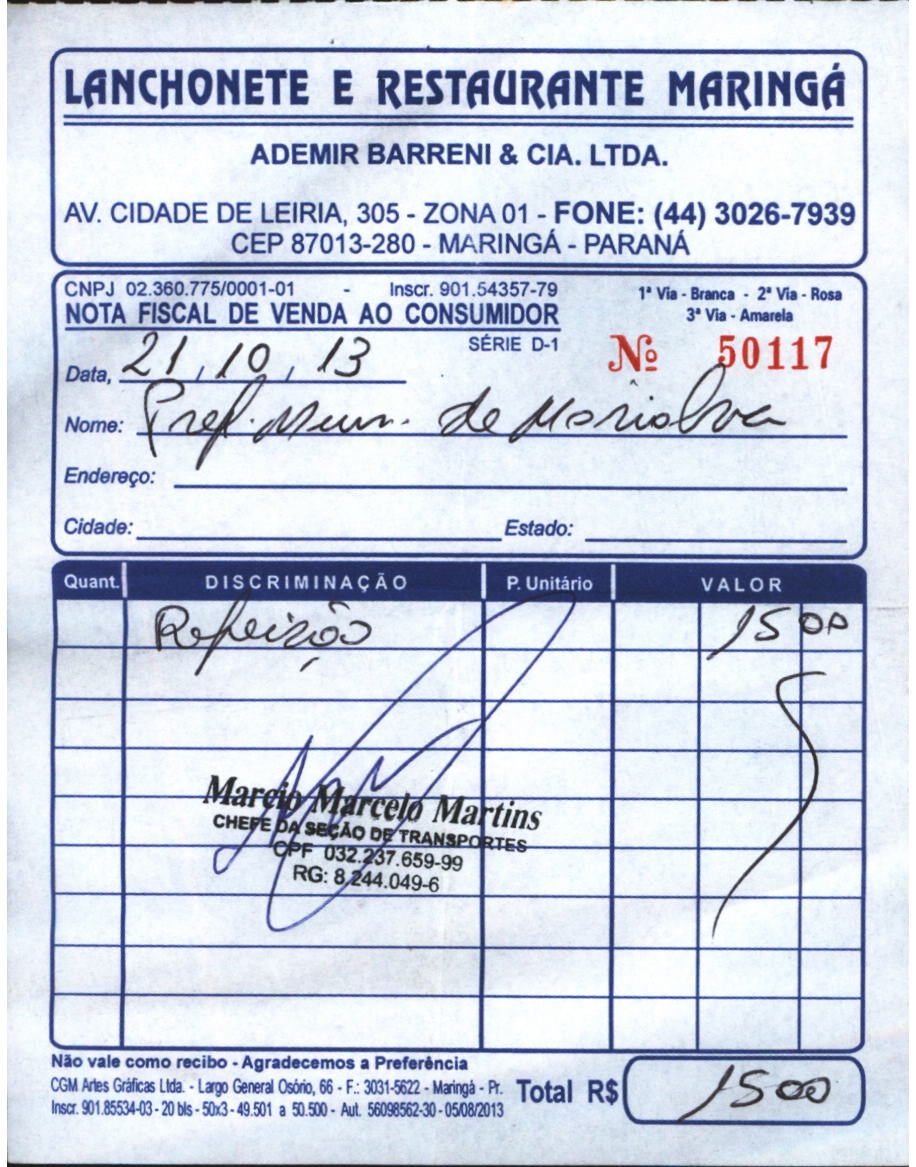 LANCHONETE E RESTAURANTE MARINGÁ
ADEMIR BARRENI & CIA. LTDA.
AV. CIDADE DE LEIRIA, 305 - ZONA 01 - FONE: (44) 3026-7939
CEP 87013-280 - MARINGÁ - PARANÁ
CNPJ 02.360.775/0001-01 - Inscr. 901.54357-79
NOTA FISCAL DE VENDA AO CONSUMIDOR
SÉRIE D-1
1ª Via - Branca - 2ª Via - Rosa
3ª Via - Amarela
Nº 50117
Data, 21, 10, 13
Nome: Pref. Mun. de Marialva
Endereço:
Cidade: Estado:
Quant. DISCRIMINAÇÃO P. Unitário VALOR
Refeição 15 00
Marcio Marcelo Martins
CHEFE DA SEÇÃO DE TRANSPORTES
CPF 032.237.659-99
RG: 8.244.049-6
Não vale como recibo - Agradecemos a Preferência
CGM Artes Gráficas Ltda. - Largo General Osório, 66 - F.: 3031-5622 - Maringá - Pr.
Inscr. 901.85534-03 - 20 bls - 50x3 - 49.501 a 50.500 - Aut. 56098562-30 - 05/08/2013
Total R$ 15 00